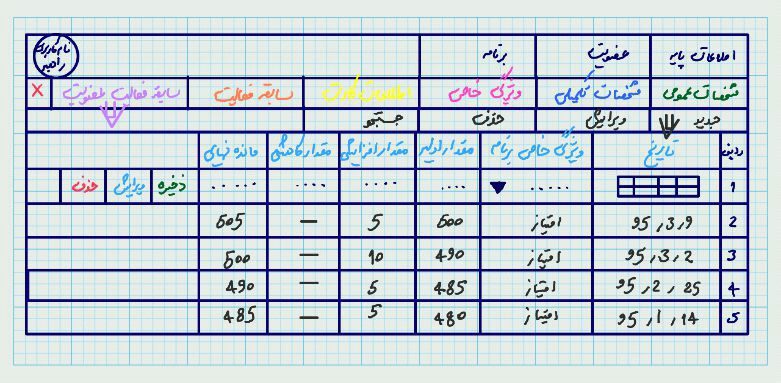 اطلاعات پایه عضویت برنامه نام کاربری راهبر
مشخصات عمومی مشخصات تکمیلی ویژگی خاص اطلاعات سابقه فعالیت سابقه فعالیت عضویت X
جدید ویرایش حذف جستجو
ردیف تاریخ ویژگی خاص برنامه مقدار اولیه مقدار افزایشی مقدار کاهشی مانده نهایی
1 ..... .... .... .... ..... ذخیره ویرایش حذف
2 95,3,9 امتیاز 500 5 — 505
3 95,3,2 امتیاز 490 10 — 500
4 95,2,25 امتیاز 485 5 — 490
5 95,1,14 امتیاز 480 5 — 485